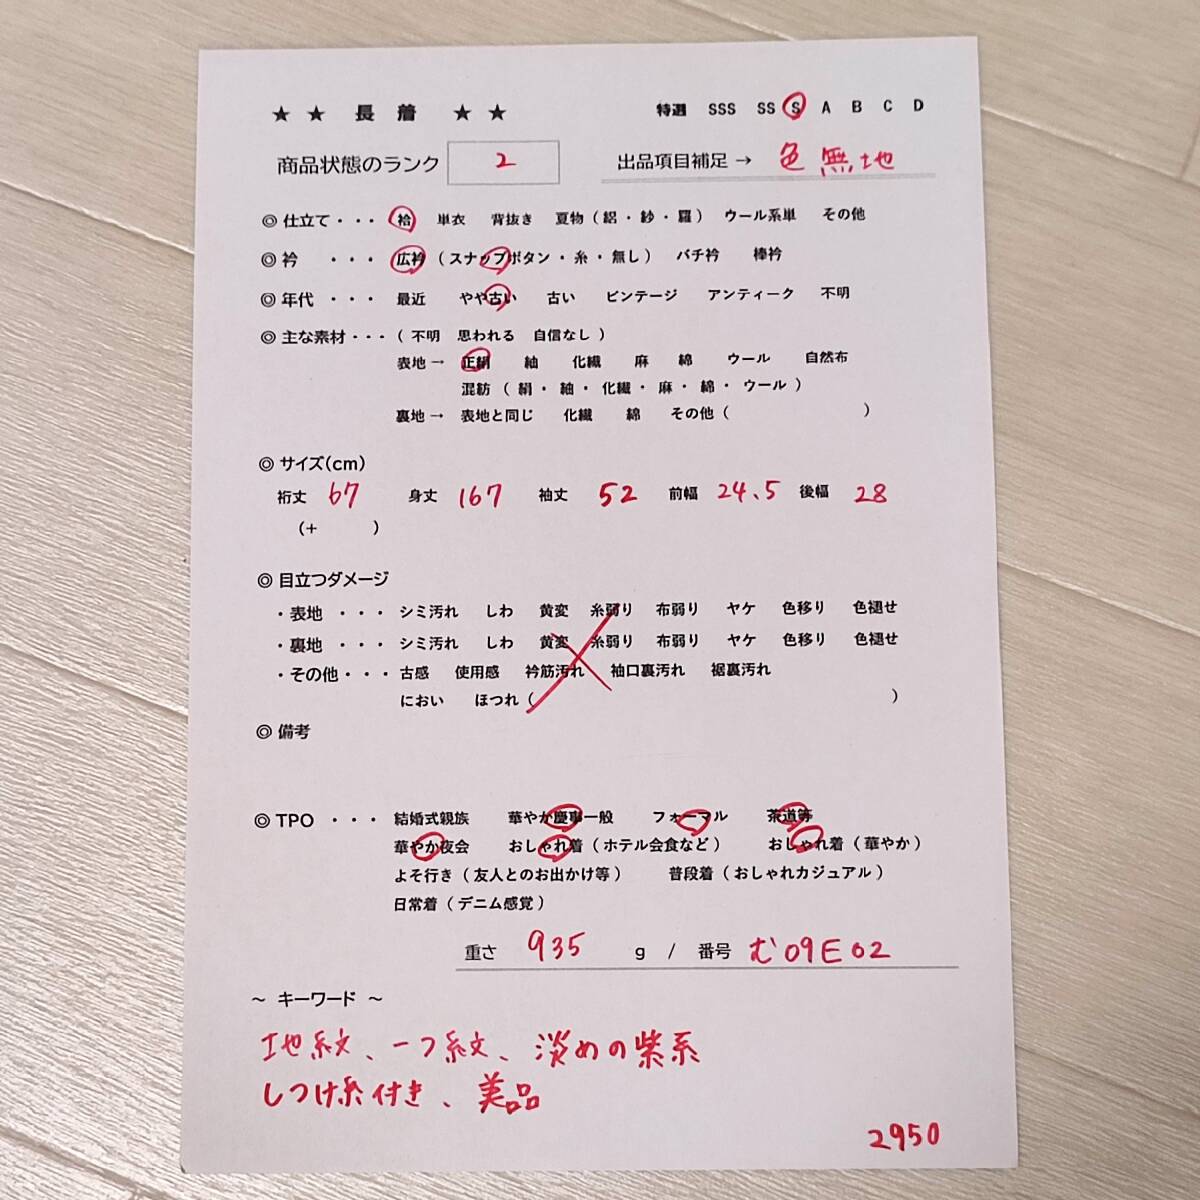 ★ ★ 長 着 ★ ★ 特選 SSS SS S A B C D
商品状態のランク 2 出品項目補足→ 色無地
◎ 仕立て・・・ 袷 単衣 背抜き 夏物（絽・紗・羅） ウール系単 その他
◎ 衿 ・・・ 広衿（スナップボタン・糸・無し） バチ衿 棒衿
◎ 年代 ・・・ 最近 やや古い 古い ビンテージ アンティーク 不明
◎ 主な素材・・・（ 不明 思われる 自信なし ）
表地→ 正絹 紬 化繊 麻 綿 ウール 自然布
混紡（ 絹・ 紬・ 化繊・ 麻・ 綿・ ウール ）
裏地→ 表地と同じ 化繊 綿 その他（ ）
◎ サイズ(cm)
裄丈 67 身丈 167 袖丈 52 前幅 24.5 後幅 28
（+ ）
◎ 目立つダメージ
・表地 ・・・ シミ汚れ しわ 黄変 糸弱り 布弱り ヤケ 色移り 色褪せ
・裏地 ・・・ シミ汚れ しわ 黄変 糸弱り 布弱り ヤケ 色移り 色褪せ
・その他・・・ 古感 使用感 衿筋汚れ 袖口裏汚れ 裾裏汚れ
におい ほつれ（ ）
◎ 備考
◎ TPO ・・・ 結婚式親族 華やか慶事一般 フォーマル 茶道等
華やか夜会 おしゃれ着（ホテル会食など） おしゃれ着（華やか）
よそ行き（友人とのお出かけ等） 普段着（おしゃれカジュアル）
日常着（デニム感覚）
重さ 935 g / 番号 む09E02
～ キーワード ～
地紋、一つ紋、淡めの紫系
しつけ糸付き、美品
2950